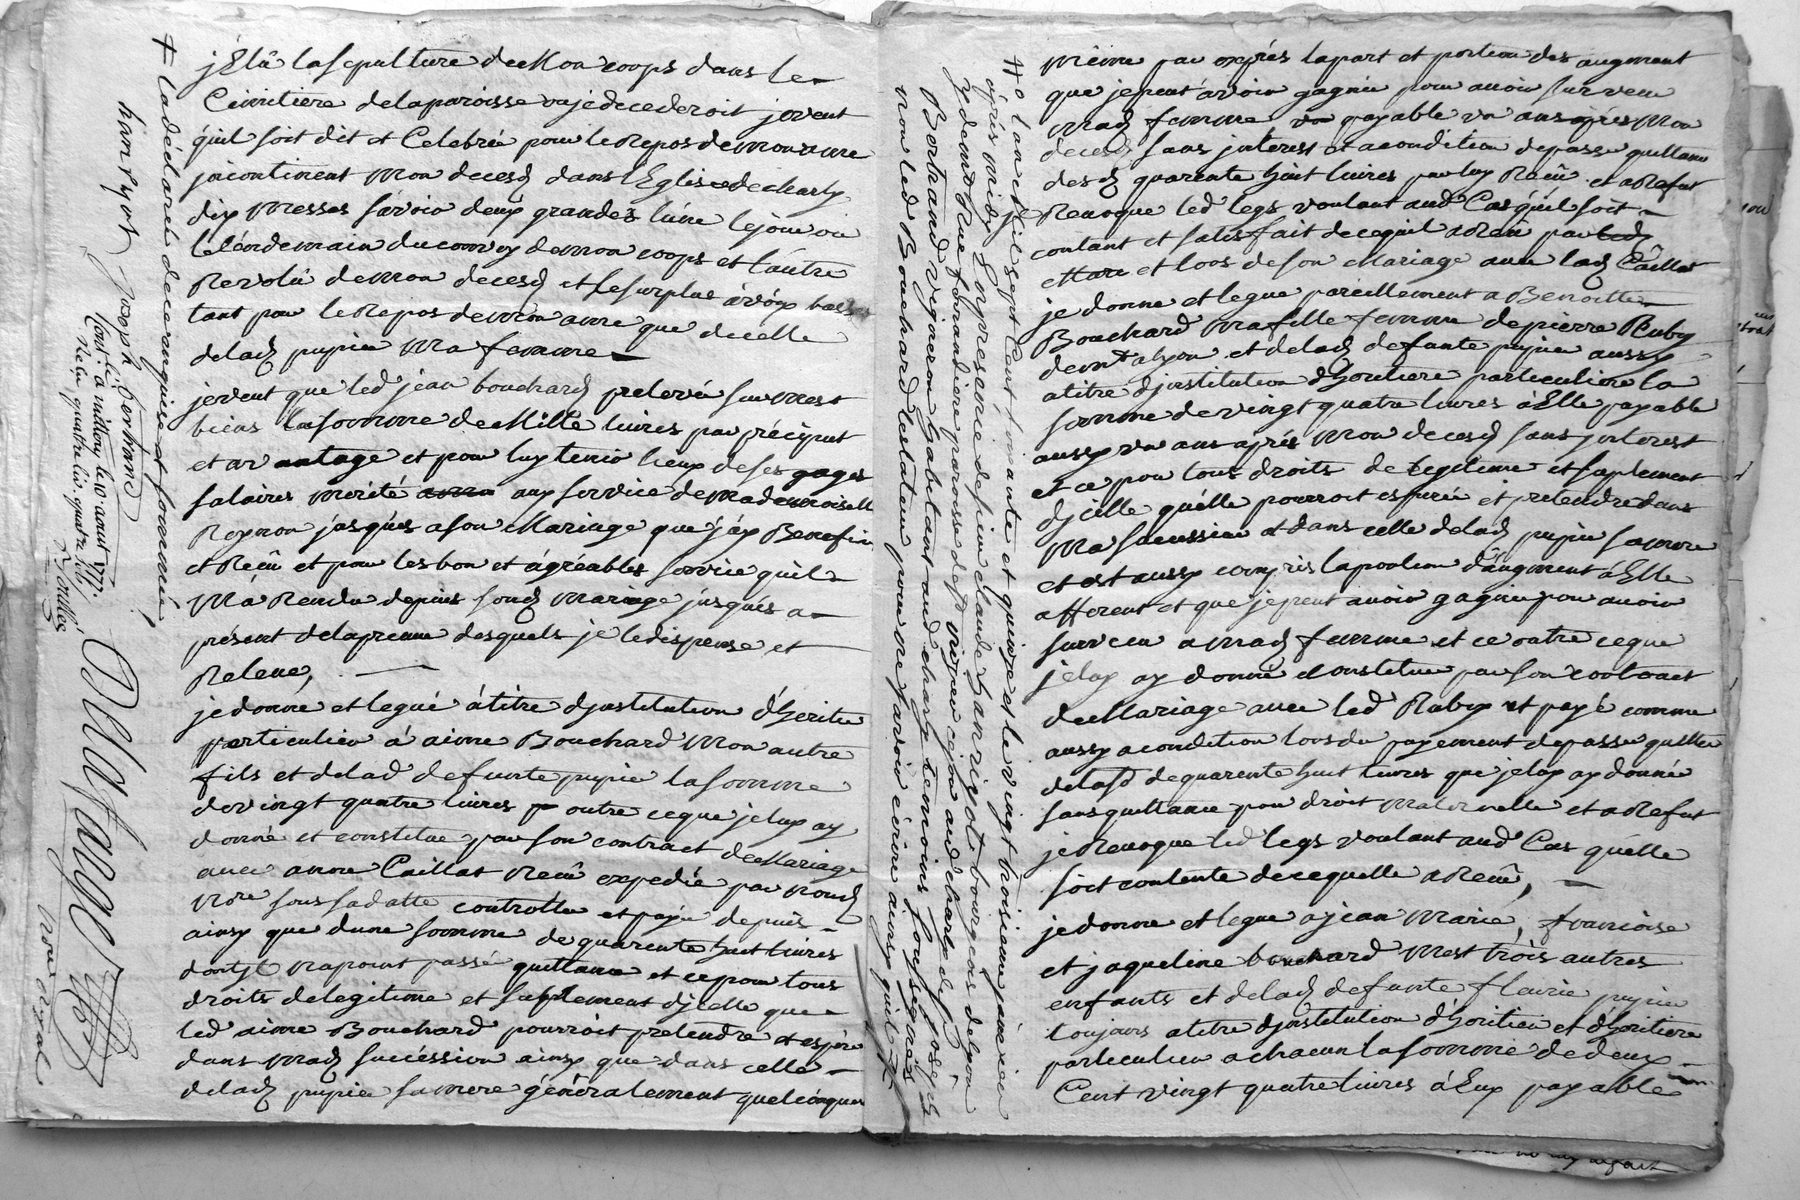 jElû la sepulture de Mon corps dans le
Cimitiere de la paroisse ou je decederoit je veut
quil soit dit et Celebrée pour le Repos de mon ame
jncontinent Mon decesd dans l'Eglise de charly
dix Messes savoir deux grandes lune le jour ou
le lendemain du convoy de mon corps et l'autre
Revolû de mon decesd et le surplus à voix basses
tant pour le Repos de mon ame que de celle
de lad pupier Ma femme
je veut que led jean bouchard preleve sur mest
biens la somme de Mille livres par préciput
et avantage et pour luy tenir lieux de ses gages
salaires mérité aux service de mademoiselle
jusques a son Mariage que j'ay
et Reçu et pour les bon et agréables service quil
M'a Rendu depuis sond mariage jusques a
présent de la preuve desquels je le dispense et
Releve,
je donne et legué à titre djnstitution d'heritier
particulier à aime Bouchard Mon autre
fils et de lad defunte pupier la somme
de vingt quatre livres outre ce que je luy ay
donné et constitue par son contract de Mariage
avec anne Caillat Reçû expedié par nousd
Nore sous sa datte controllé et payée depuis
ainsy que dune somme de quarente huit livres
dont jl ma point passé quittance et ce pour tous
droits de legitime et suplement djcelle que
led aime Bouchard pourroit pretendre et espéré
dans mad succession ainsy que dans celle
de lad pupier sa mere généralement quelconques
+ la déclaré de ce enquise et sommé
hanriot joseph bertrand
Cont. à millery le 10 aoust 1777.
Reçu quatre liv. quatre sols
Delafarge
Nore Royal
même par exprés la part et portion des augment
que je peut avoir gagnée pour avoir survecu
mad femme payable un ans après Mon
decesd sans jnterest et a condition de passer quittance
desd quarente huit livres par luy Reçû et a Refut
Revoque led legs voulant aud Cas quil soit
contant et satisfait de ce quil a Reçu par
et lors de son Mariage avec lad Caillat
je donne et legue pareillement a Benoitte
Bouchard ma fille femme de pierre Ruby
demt a lyon et de lad defunte pupier aussy
a titre djnstitution d'heritiere particuliere la
somme de vingt quatre livres à Elle payable
aussy un ans après Mon decesd sans jnterest
et ce pour tous droits de legitime et suplement
djcelle quelle pourroit esperée et pretendre dans
Ma sucession et dans celle de lad pupier sa mere
et est aussy compris la portion d'augment à Elle
afferent et que je peut avoir gagnée pour avoir
survecu a mad femme et ce outre ce que
je luy ay donné et constitue par son contract
de Mariage avec led Ruby et payé comme
aussy a condition lors du payement de passer quittance
de lasd de quarente huit livres que je luy ay donnée
sans quittance pour droit maternelle et a Refut
je Revoque led legs voulant aud Cas quelle
soit contente de ce quelle a Reçu,
je donne et legue a jean Marie, francoise
et jaqueline bouchard Mest trois autres
enfants et de lad defunte fleurie pupier
toujours a titre djnstitution d'heritier et d'heritiere
particulier a chacun la somme de deux
Cent vingt quatre livres à Eux payable
+o lan Mil sept Cent soixante et quinze et le vingt troisieme janvier
après midy En presence de sieur claude hanriot bourgeois de lyon
y demt Rue parroisse de st nizier et joseph
Bertrand vigneron habitant aud charly temoins soussignés
non led Bouchard testateur pour ne savoir écrire ainsy quil +